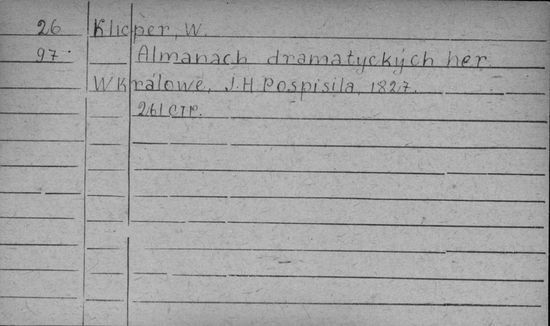 26 Klicper, W.
97. Almanach dramatyckých her.
W Kralowe, J. H. Pospisila, 1827.
261 стр.